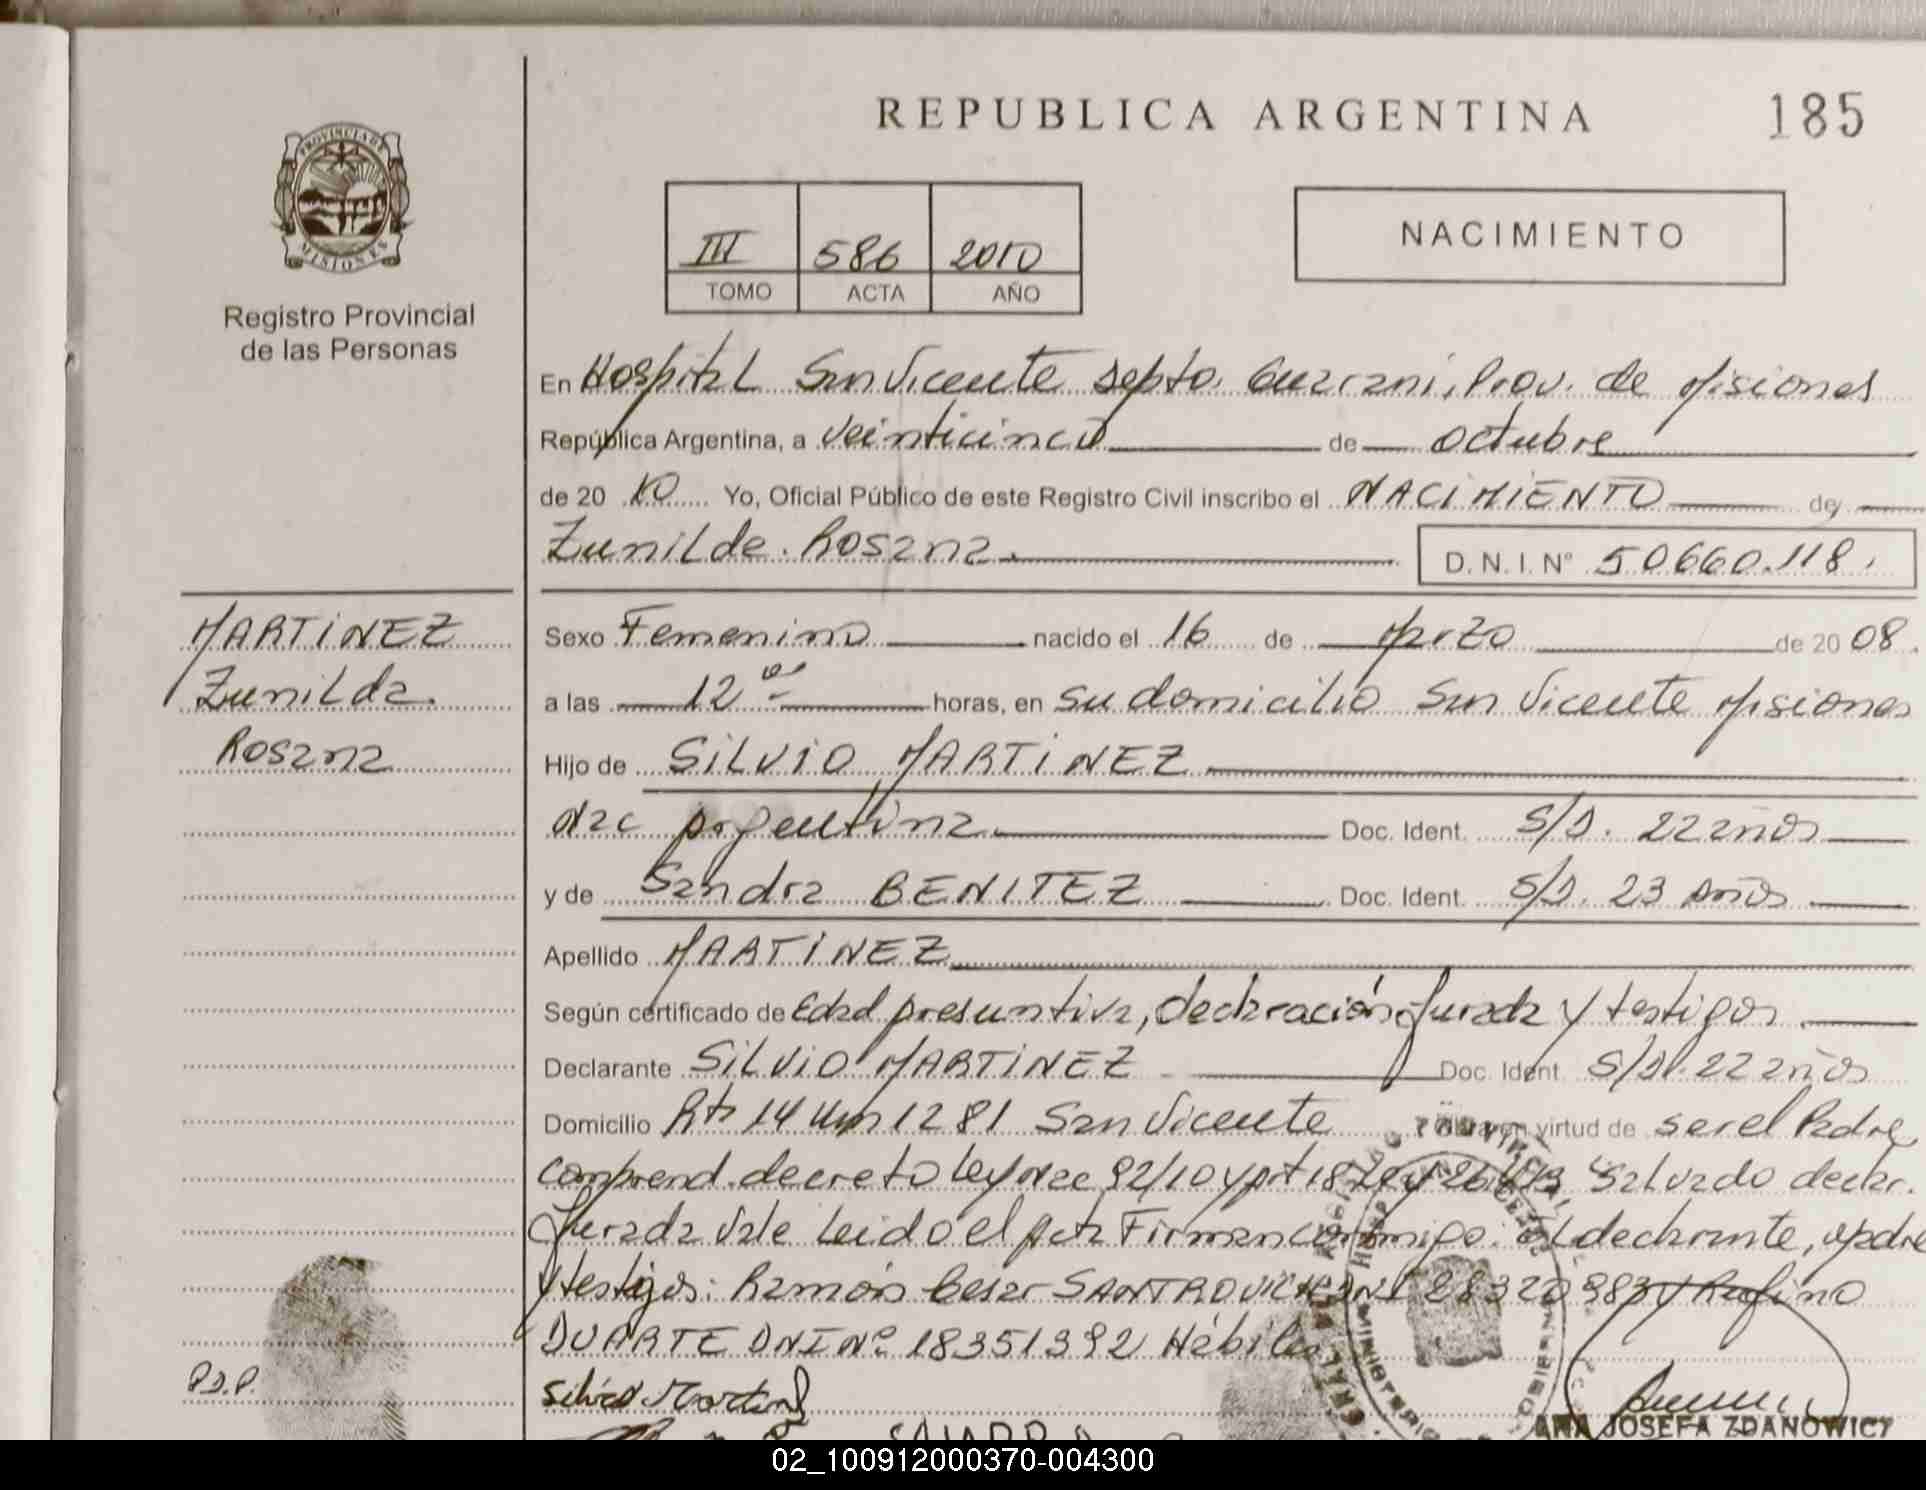 REPUBLICA ARGENTINA
185
PROVINCIA DE
MISIONES
Registro Provincial
de las Personas
III 586 2010
TOMO ACTA AÑO
NACIMIENTO
En Hospital San Vicente Depto. Guarani, Prov. de Misiones
República Argentina, a veinticinco de octubre
de 20 10 Yo, Oficial Público de este Registro Civil inscribo el NACIMIENTO de
Zunilde Rosana.
D. N. I. N° 50660.118.
MARTINEZ
Zunilda.
Rosana
Sexo Femenino nacido el 16 de Marzo de 20 08.
a las 12 horas, en su domicilio San Vicente Misiones
Hijo de SILVIO MARTINEZ
Nac Argentina Doc. Ident. S/D. 22 años
y de Sandra BENITEZ Doc. Ident. S/D. 23 años
Apellido MARTINEZ
Según certificado de Edad presuntiva, Declaración Jurada y testigos
Declarante SILVIO MARTINEZ Doc. Ident. S/D. 22 años
Domicilio Rta 14 Km 1281 San Vicente en virtud de ser el Padre
Comprend. decreto Ley Nac 92/10 y Art 18 Ley 26413. Salvado declar.
Jurada Vale Leido el Acta Firman conmigo: el declarante, padre
y testigos: Ramón Cesar SANTROVICH DNI 28320983 y Rufino
DUARTE DNI Nº 18351392 Hábiles
P.D.P.
Silvio Martinez
ANA JOSEFA ZDANOWICZ
02_100912000370-004300